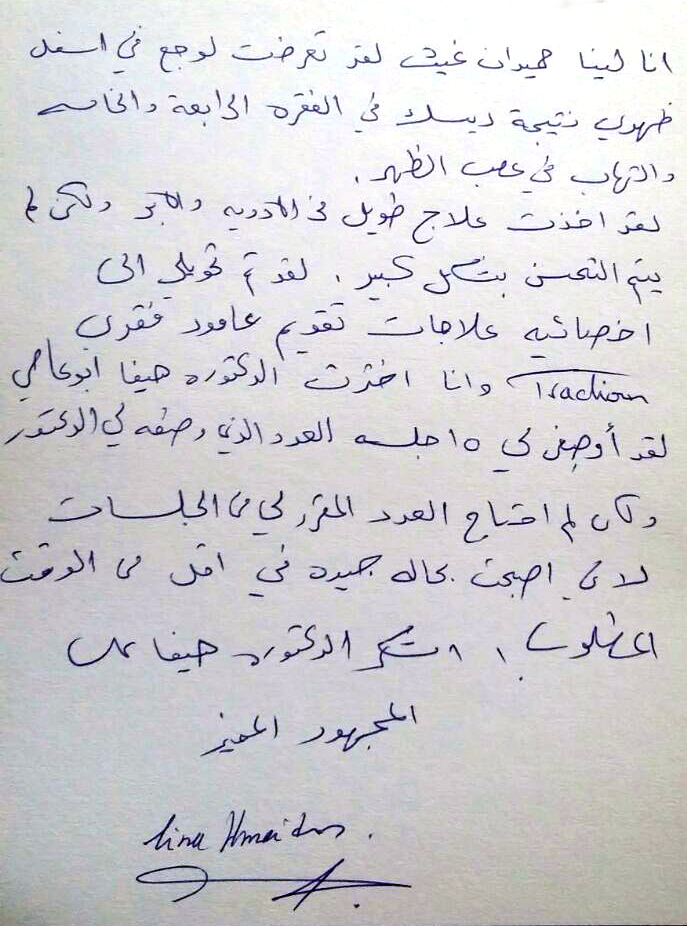 انا لينا حميدان غيث لقد تعرضت لوجع في اسفل
ظهري نتيجة ديسك في الفقره الرابعة والخامسه
والتهاب في عصب الظهر.
لقد اخذت علاج طويل في الادويه والابر ولكن لم
يتم التحسن بشكل كبير. لقد تم تحويلي الى
اخصائيه علاجات تقويم عامود فقري
Traction وانا اخترت الدكتوره هيفا ابوعاصي
لقد أوصفن لي ١٥ جلسه العدد الذي وصفه لي الدكتور
وكان لم احتاج العدد المقرر لي من الجلسات
لاني اصبحت بحاله جيده في اقل من الوقت
المطلوب، اشكر الدكتوره هيفا على
المجهور المميز
Lina Hmaidan.